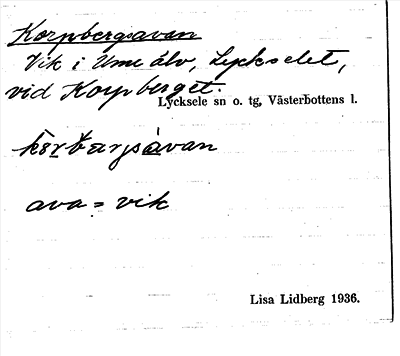 Korpbergsavan
Vik i Ume älv, Lyckselet,
vid Korpberget.
Lycksele sn o. tg, Västerbottens l.
ava = vik
Lisa Lidberg 1936.